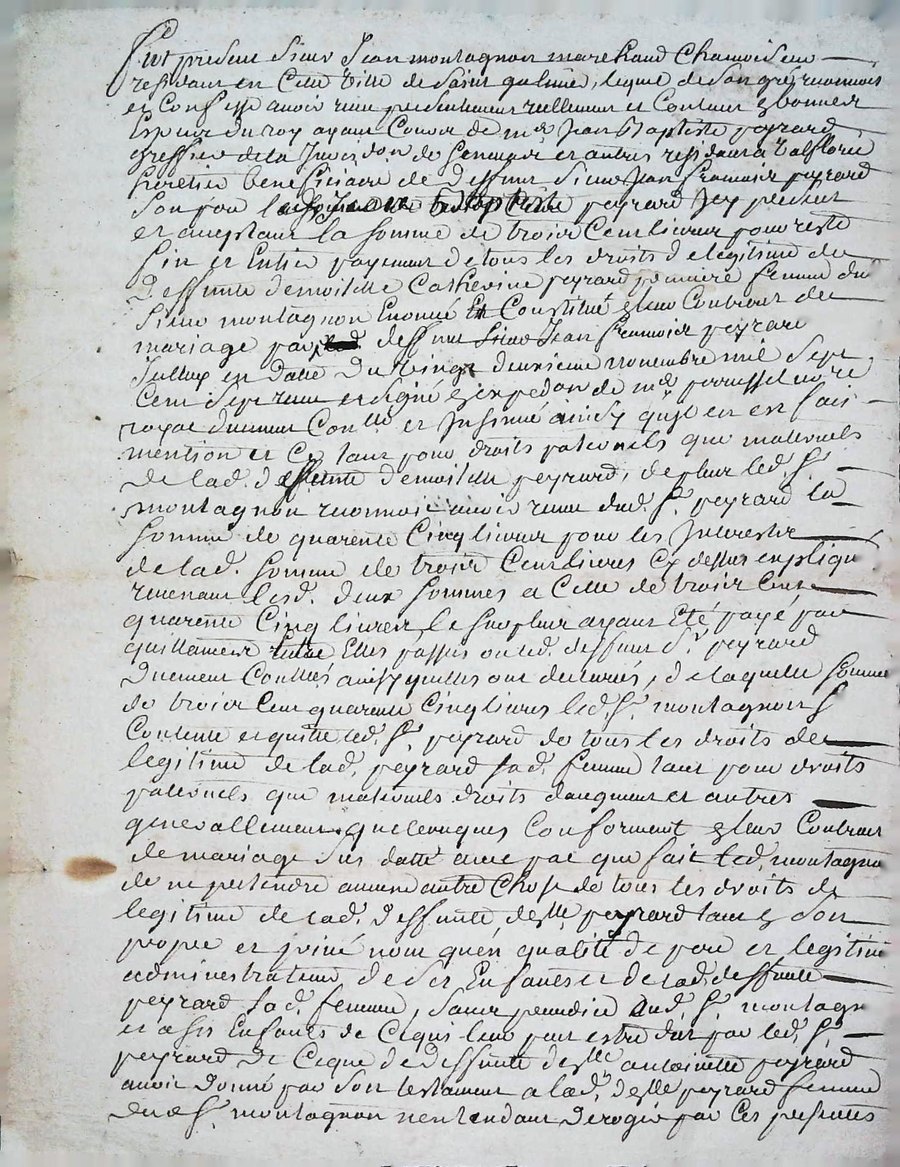 fut present Sieur Jean montagnon marchand Chamoiseur
residant en Cette Ville de Saint galmier, lequel de son gré, reconnoit
et Confesse avoir reçu presentement reellement et Contant en bonnes
Especes du roy ayant Cours de mr Jean Baptiste peyrard
greffier de la Jurisdon de et autres residant a
heretier beneficiaire de deffunt Sieur Jean francois peyrard
Son pere led. Jean Baptiste peyrard Icy present
et acceptant la somme de trois Cent livres pour reste
fin et Entier payement de tous les droits de legitime de
deffunte demoiselle Catherine peyrard premiere femme du
Sieur montagnon Enoncé Et Constitué en leur Contrat de
mariage par deffunt Sieur Jean francois peyrard
en datte du Vingt deuxieme novembre mil Sept
Cent Sept reçu et signé en expedon de me notaire
royal duement Conllé et Insinué ainsy qu'il en est fait
mention et Ce tant pour droits paternels que maternels
de lad. deffunte demoiselle peyrard, de plus led. Sr
montagnon reconnoit avoir reçu dud. Sr peyrard la
Somme de quarente Cinq livres pour les Interestz
de lad. Somme de trois Cent livres Cy dessus expliqué
revenant lesd. deux Sommes a Celle de trois Cent
quarente Cinq livres le surplus ayant Eté payé par
quittances Entre Elles passés ou led. deffunt Sr peyrard
duement Conllés ainsy quelles ont declarés, de laquelle Somme
de trois Cent quarente Cinq livres led. Sr montagnon S
Contente et quitte led. Sr peyrard de tous les droits de
legitime de lad. peyrard sad. femme tant pour droits
paternels que maternels droits daugment et autres
generallement quelconques Conforment en leur Contrat
de mariage Sus datté avec pac que fait led. montagnon
de ne pretendre aucune autre Chose de tous les droits de
legitime de lad. deffunte delle peyrard tant en Son
propre et privé nom qu'en qualité de pere et legitime
administrateur de Ses Enfants et de lad. deffunte
peyrard sad. femme, Sans prejudice aud. Sr montagnon
et a Ses Enfants de Ce qui leur peut estre dut par led. Sr
peyrard de Ceque de deffunte delle antoinette peyrard
avoir donné par Son testament a lad. delle peyrard femme
dud. Sr. montagnon n'entendant deroger par Ces presentes